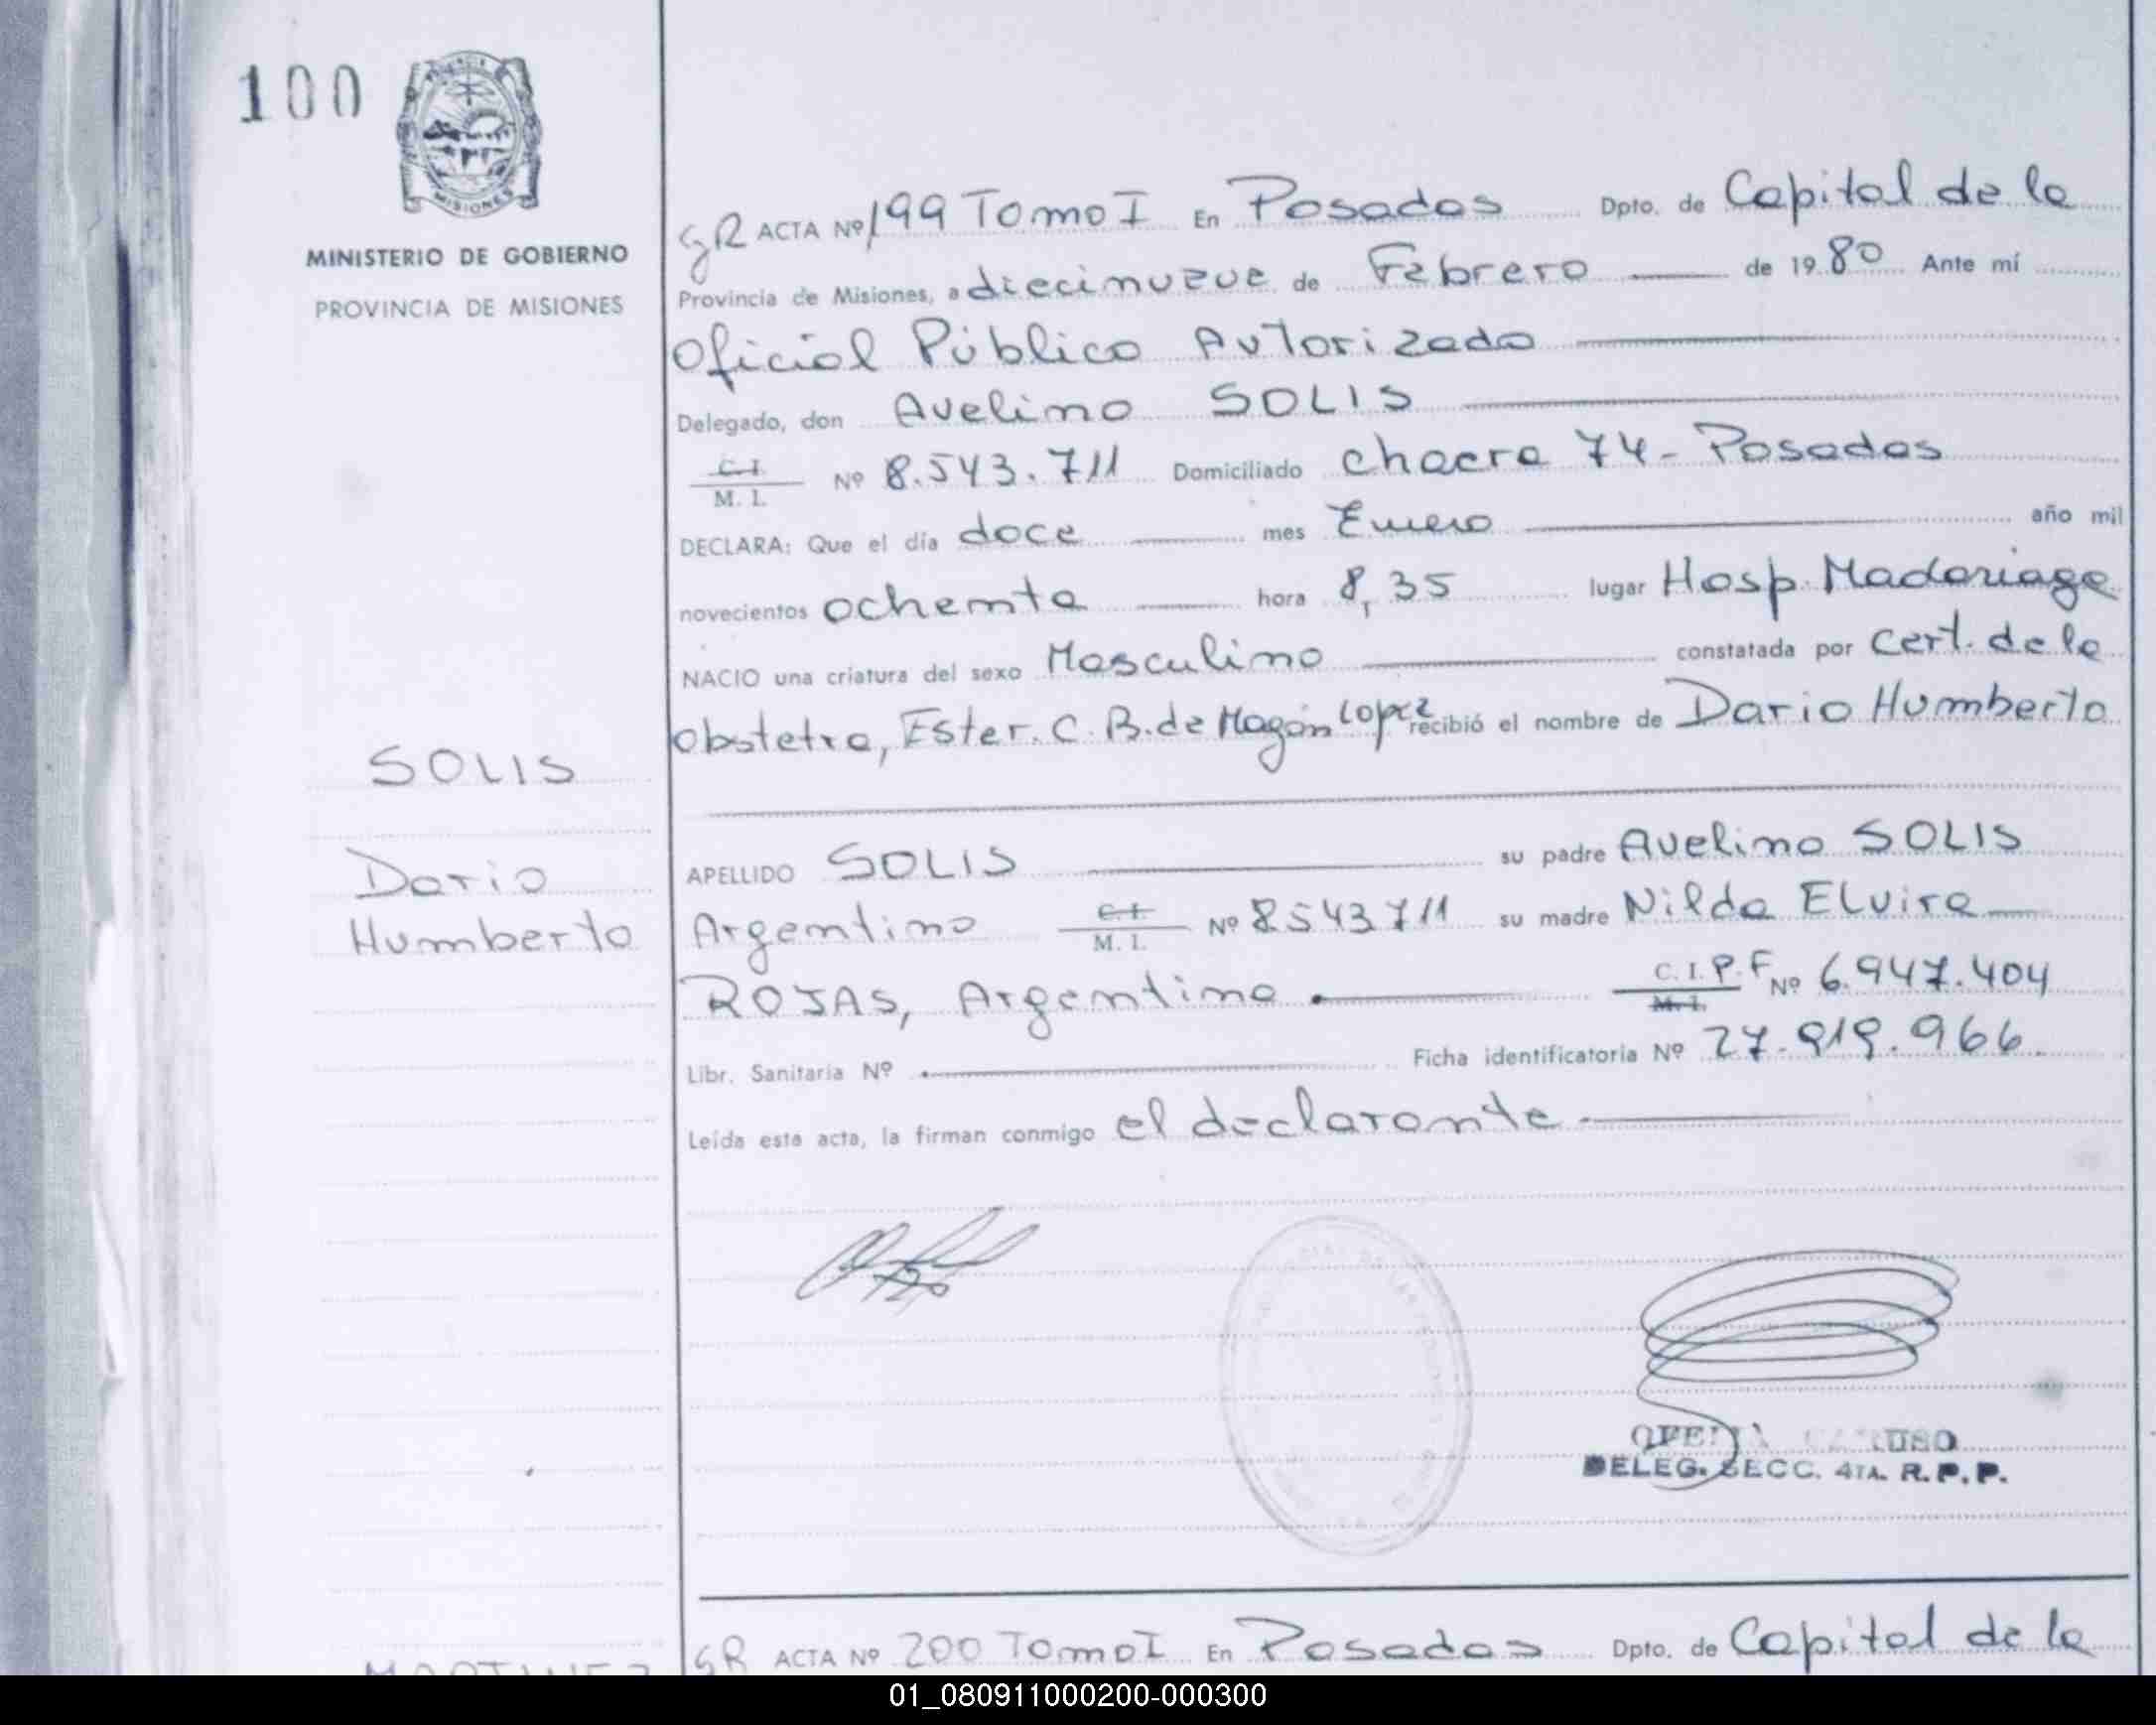 100
MISIONES
MINISTERIO DE GOBIERNO
PROVINCIA DE MISIONES
SOLIS
Dario
Humberto
GR ACTA Nº 199 Tomo I En Posadas Dpto. de Capital de la
Provincia de Misiones, a diecinueve de Febrero de 1980 Ante mí
Oficial Público Autorizado
Delegado, don Avelino SOLIS
C. I.
M. I. Nº 8.543.711 Domiciliado chacra 74 - Posadas
DECLARA: Que el día doce mes Enero año mil
novecientos ochenta hora 8,35 lugar Hosp. Madariaga
NACIO una criatura del sexo Masculino constatada por Cert. de la
Obstetra, Ester. C. B. de Magón Lopez recibió el nombre de Dario Humberto
APELLIDO SOLIS su padre Avelino SOLIS
Argentino C. I. M. I. Nº 8543711 su madre Nilda Elvira
ROJAS, Argentina C. I. P. F. M. I. Nº 6.947.404
Libr. Sanitaria Nº Ficha identificatoria Nº 27.819.966.
Leída esta acta, la firman conmigo el declarante
DELEG. SECC. 4TA. R. P. P.
GR ACTA Nº 200 Tomo I En Posadas Dpto. de Capital de la
01_080911000200-000300